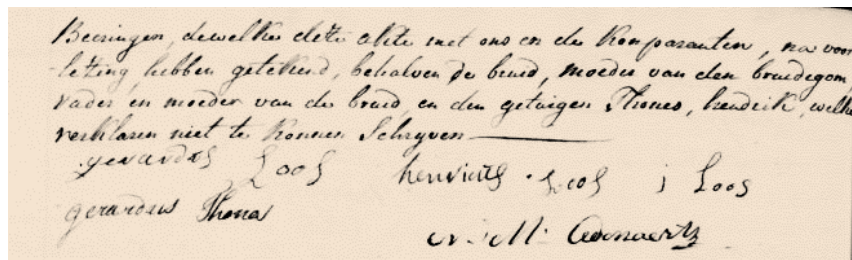 Beeringen, dewelke deze akte met ons en de komparanten, na voor-
lezing, hebben getekend, behalven de bruid, moeder van den bruidegom,
vader en moeder van de bruid, en den getuigen Thones, hendrik, welke
verklaren niet te konnen Schryven
gerardus Loos henricus Loos j Loos
gerardus Thona